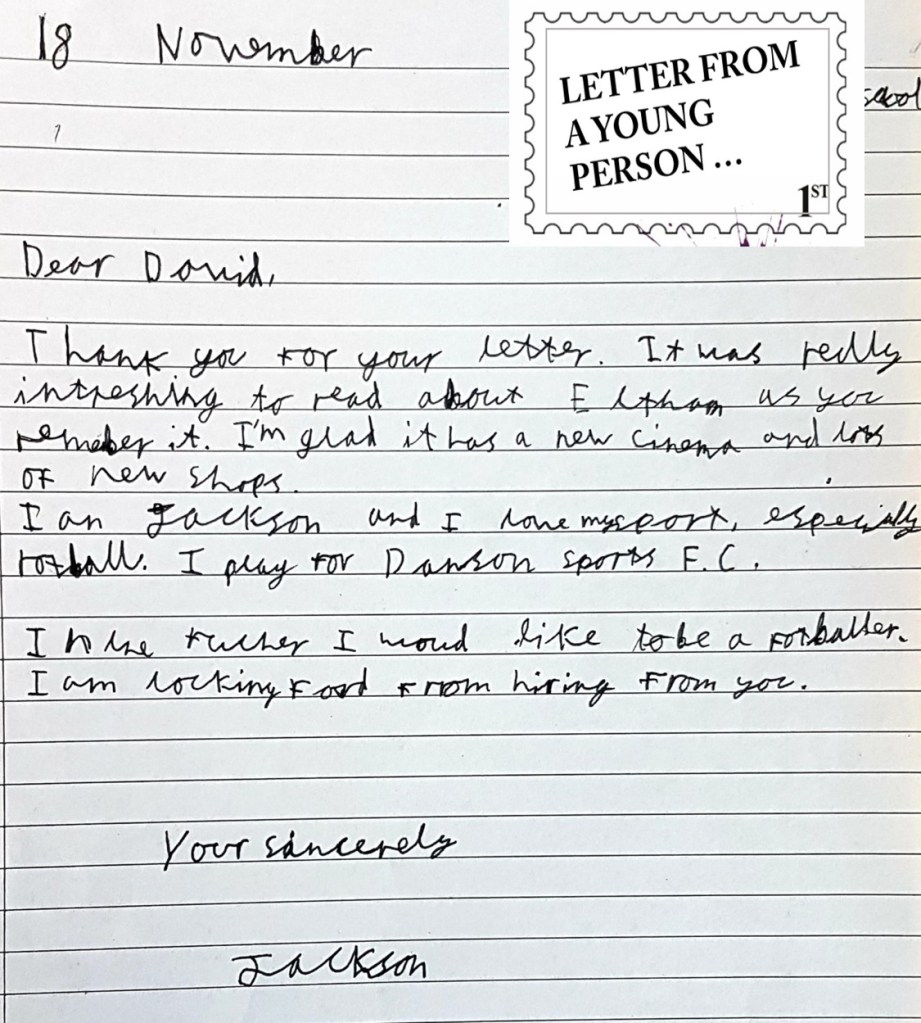 18 November
LETTER FROM
A YOUNG
PERSON ...
1ST
school
Dear David,
Thank you for your letter. It was really
intreshing to read about Eltham as you
remeber it. I'm glad it has a new cinema and lots
of new shops.
I am Jackson and I love my sport, especially
football. I play for Danson sports F.C.
I n the futher I woud like to be a footballer.
I am looking foord from hiring from you.
Your sincerely
Jackson